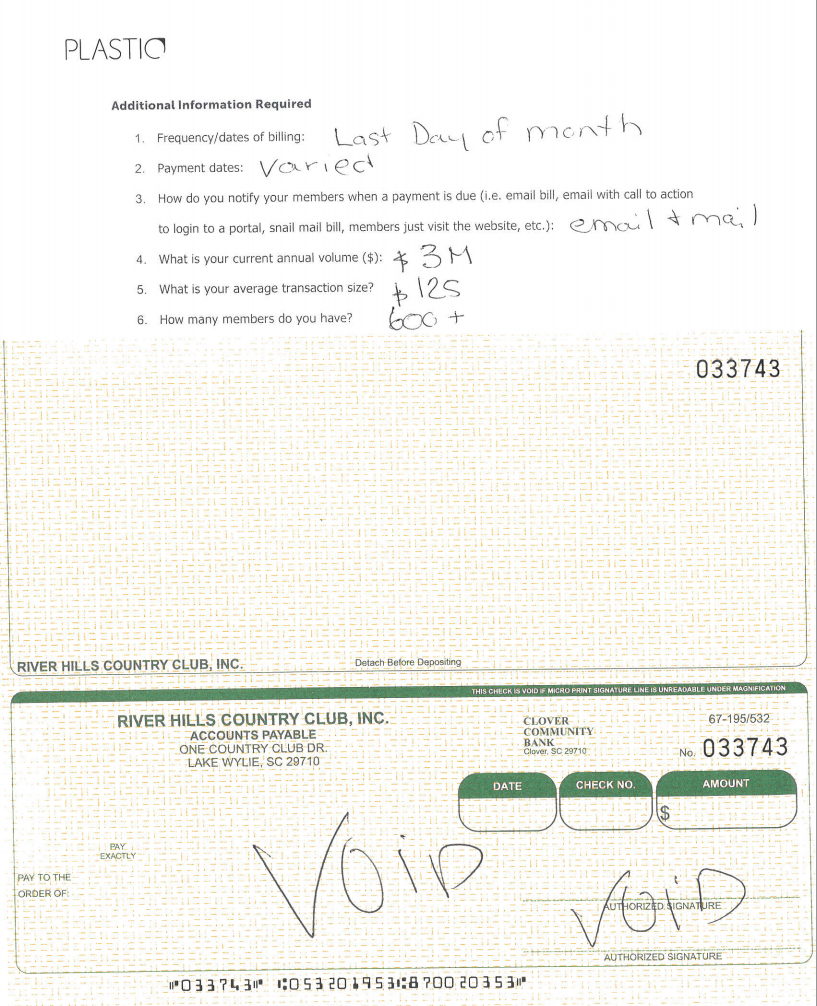 PLASTIQ
Additional Information Required
1. Frequency/dates of billing: Last Day of month
2. Payment dates: Varied
3. How do you notify your members when a payment is due (i.e. email bill, email with call to action
to login to a portal, snail mail bill, members just visit the website, etc.): email + mail
4. What is your current annual volume ($): $ 3M
5. What is your average transaction size? $ 125
6. How many members do you have? 600 +
033743
RIVER HILLS COUNTRY CLUB, INC.
Detach Before Depositing
THIS CHECK IS VOID IF MICRO PRINT SIGNATURE LINE IS UNREADABLE UNDER MAGNIFICATION
RIVER HILLS COUNTRY CLUB, INC.
ACCOUNTS PAYABLE
ONE COUNTRY CLUB DR.
LAKE WYLIE, SC 29710
CLOVER
COMMUNITY
BANK
Clover, SC 29710
67-195/532
No. 033743
DATE
CHECK NO.
AMOUNT
$
PAY
EXACTLY
PAY TO THE
ORDER OF:
VOID
VOID
AUTHORIZED SIGNATURE
AUTHORIZED SIGNATURE
⑈033743⑈ ⑆053201953⑆870020353⑈